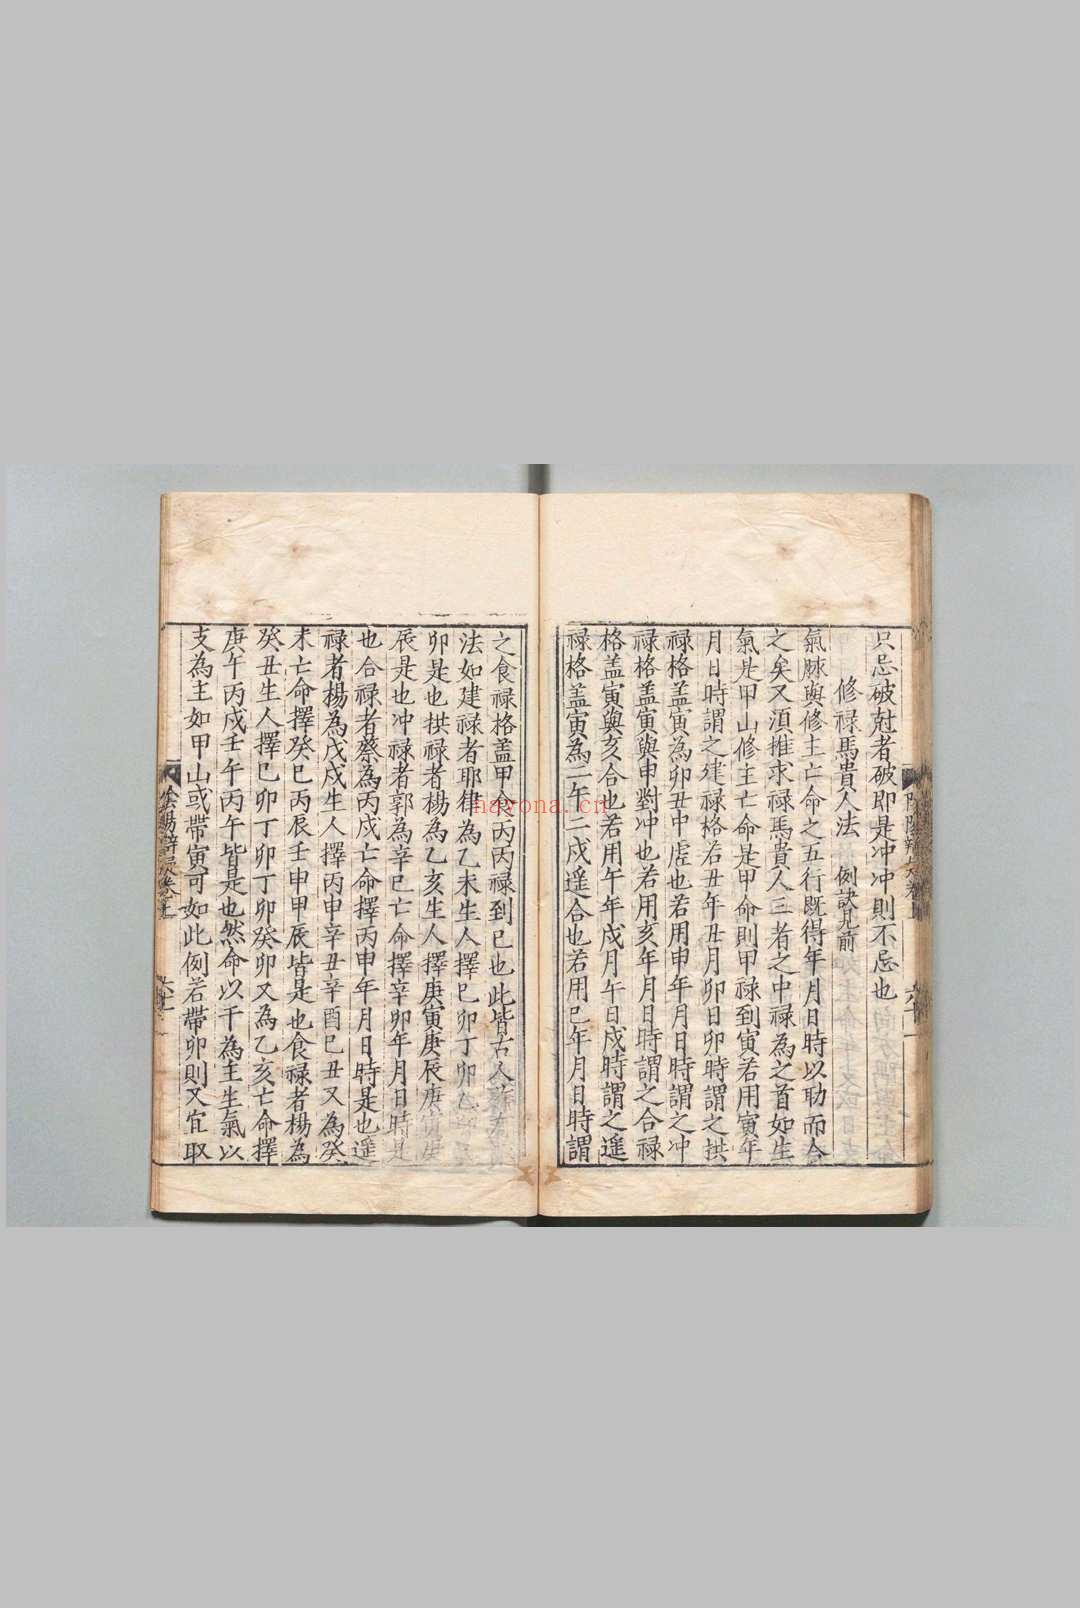 只忌破尅者破即是冲冲則不忌也
修禄馬貴人法 例訣見前
氣脉與修主亡命之五行既得年月日時以助而合
之矣又湏推求禄馬貴人三者之中禄為之首如生
氣是甲山修主亡命是甲命則甲禄到寅若用寅年
月日時謂之建禄格若丑年丑月卯日卯時謂之拱
禄格盖寅為卯丑中虚也若用申年月日時謂之冲
禄格盖寅與申對冲也若用亥年月日時謂之合禄
格盖寅與亥合也若用午年戍月午日戍時謂之遥
禄格盖寅為二午二戍遥合也若用巳年月日時謂
之食禄格盖甲食丙丙禄到巳也此皆古人
法如建禄者耶律為乙未生人擇巳卯丁卯乙
卯是也拱禄者楊為乙亥生人擇庚寅庚辰庚寅庚
辰是也冲禄者郭為辛巳亡命擇辛卯年月日時是
也合禄者蔡為丙戍亡命擇丙申年月日時是也遥
禄者楊為戊戍生人擇丙申辛丑辛酉巳丑又為癸
未亡命擇癸巳丙辰壬申甲辰皆是也食禄者楊為
癸丑生人擇巳卯丁卯丁卯癸卯又為乙亥亡命擇
庚午丙戍壬午丙午皆是也然命以干為主生氣以
支為主如甲山或帶寅可如此例若帶卯則又宜取